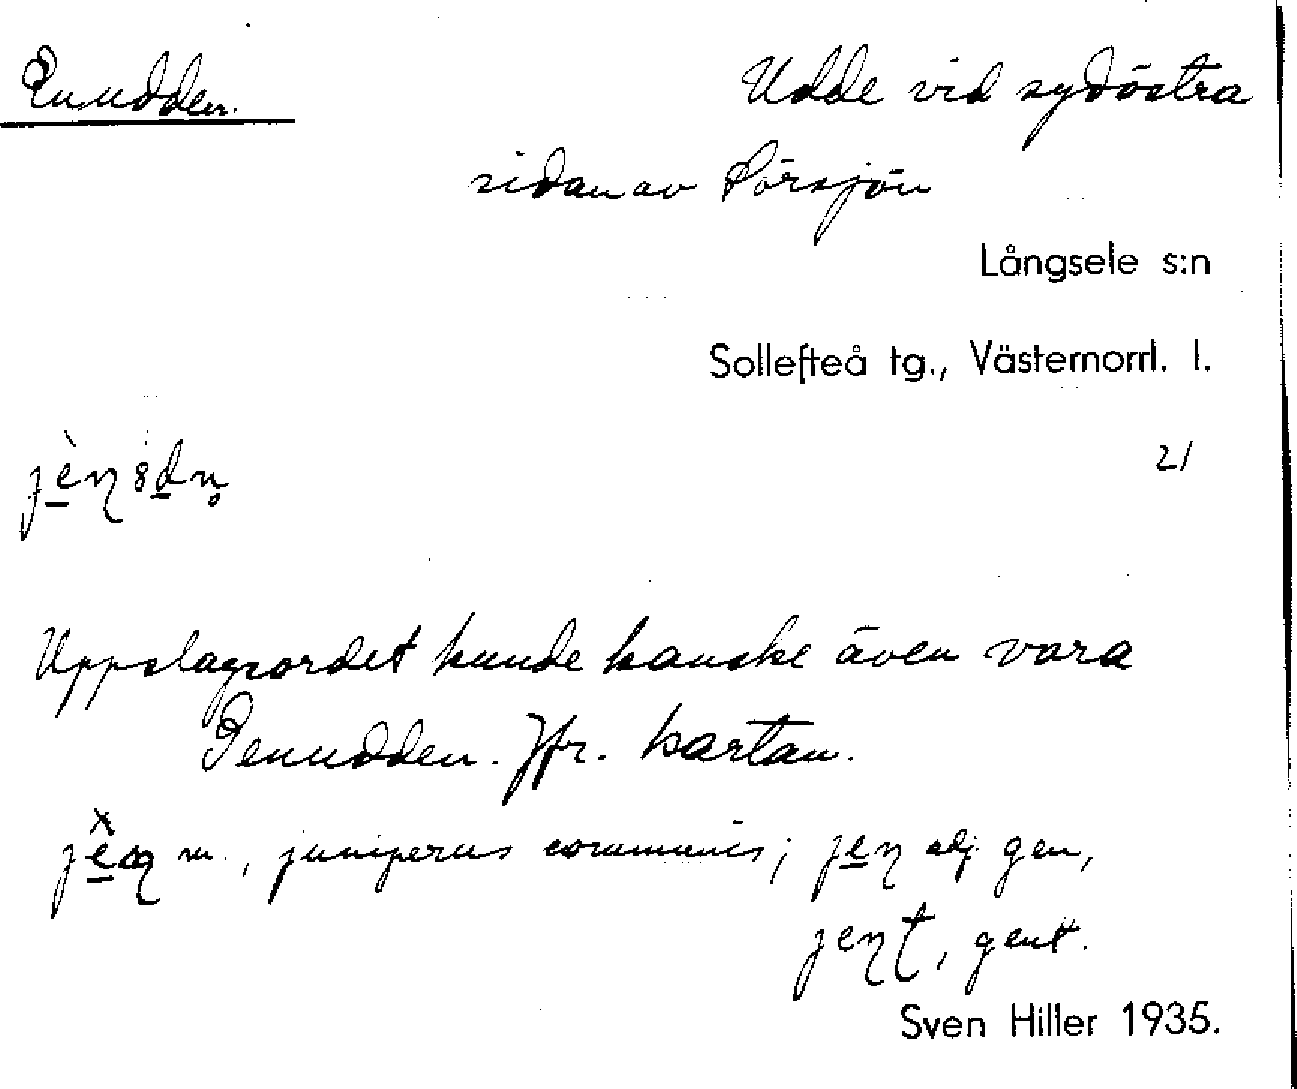 Enudden.
Udde vid sydöstra
sidan av Sörsjön
Långsele s:n
Sollefteå tg., Västernorrl. l.
21
Uppslagsordet kunde kanske även vara
Genudden. Jfr. kartan.
m., juniperus communis; adj. gen,
gent.
Sven Hiller 1935.